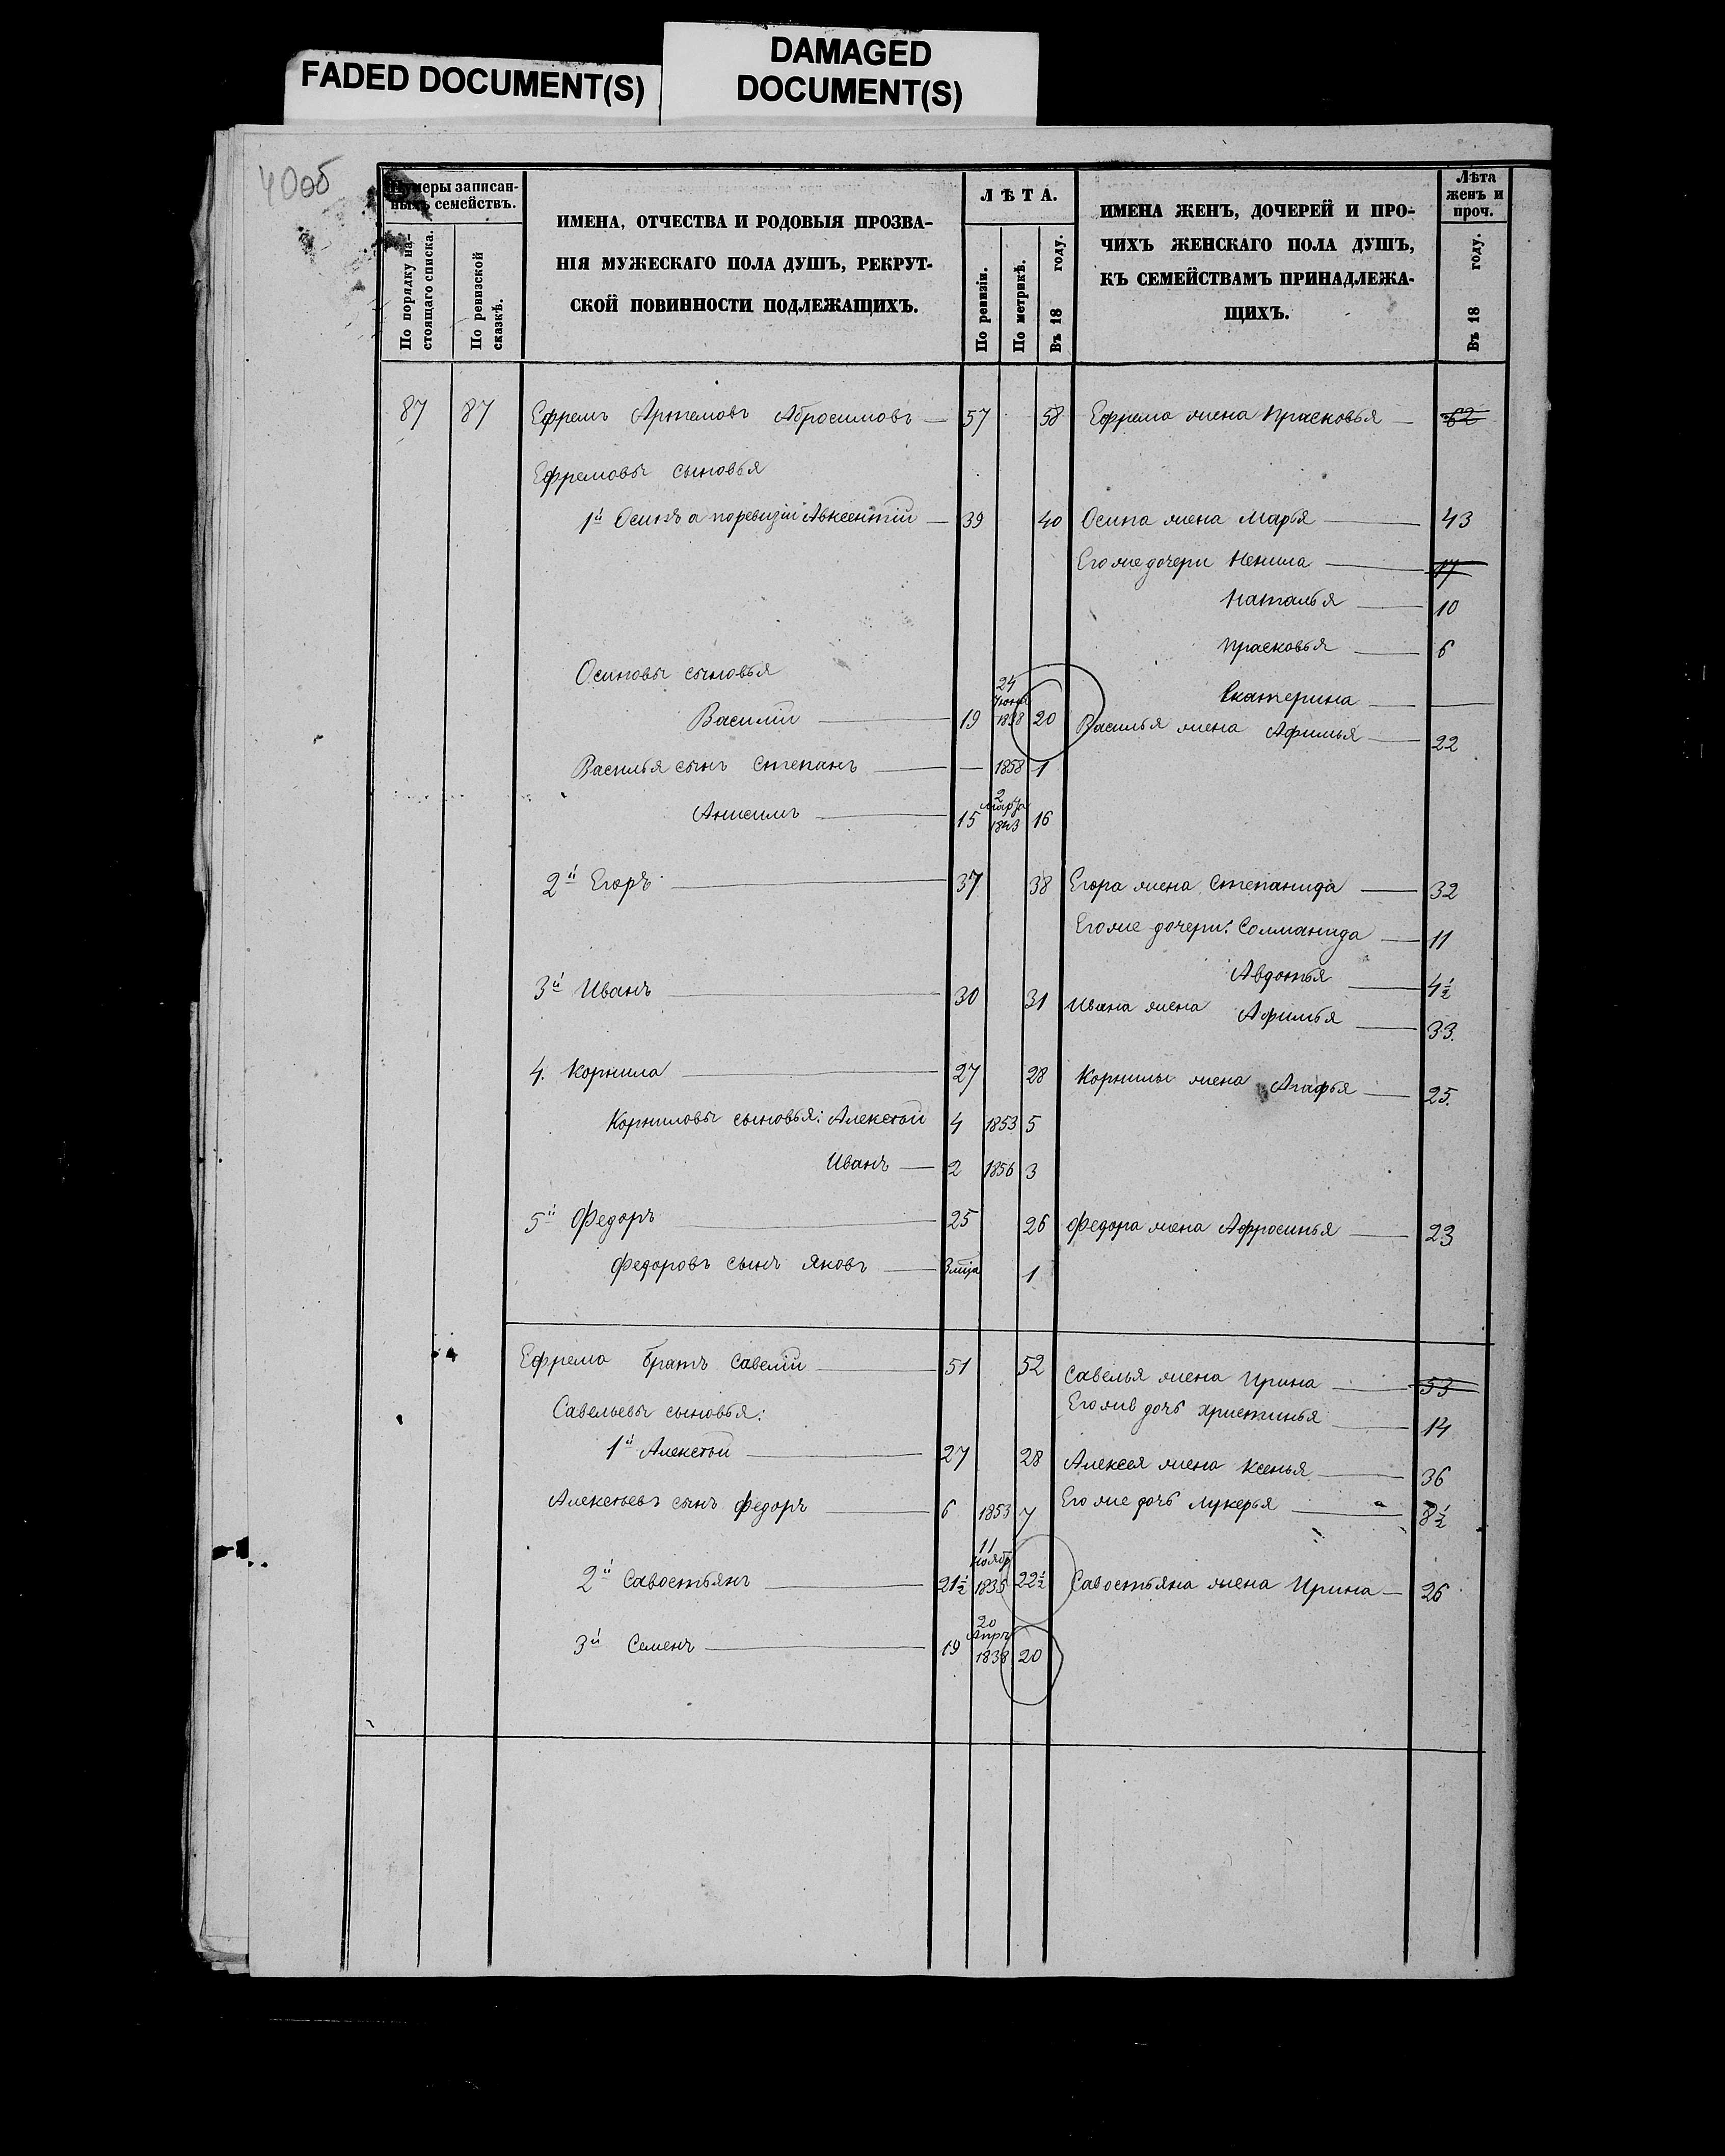 FADED DOCUMENT(S)
DAMAGED
DOCUMENT(S)
40об
Нумеры записан-
ныхъ семействъ.
По порядку на-
стоящаго списка.
По ревизской
сказкѣ.
ИМЕНА, ОТЧЕСТВА И РОДОВЫЯ ПРОЗВА-
НІЯ МУЖЕСКАГО ПОЛА ДУШЪ, РЕКРУТ-
СКОЙ ПОВИННОСТИ ПОДЛЕЖАЩИХЪ.
ЛѢТА.
По ревизіи.
По метрикѣ.
Въ 18 году.
ИМЕНА ЖЕНЪ, ДОЧЕРЕЙ И ПРО-
ЧИХЪ ЖЕНСКАГО ПОЛА ДУШЪ,
КЪ СЕМЕЙСТВАМЪ ПРИНАДЛЕЖА-
ЩИХЪ.
Лѣта
женъ и
проч.
Въ 18 году.
87 87 Ефремъ Артемовъ Абросимовъ — 57 58 Ефрема жена Прасковья — 62
Ефремовы сыновья
1й Осипъ а поревизіи Авксентій — 39 40 Осипа жена Марья — 43
Его же дочери Ненила — 17
Наталья — 10
Прасковья — 6
Осиповы сыновья
Екатерина —
Василій — 19 24 Іюня 1838 20 Василья жена Афимья — 22
Василья сынъ Степанъ — — 1858 1
Анисимъ — 15 2 Марта 1843 16
2й Егоръ — 37 38 Егора жена Степанида — 32
Его же дочери: Соломанида — 11
Авдотья — 4½
3й Иванъ — 30 31 Ивана жена Афимья — 33.
4. Корнила — 27 28 Корнилы жена Агафья — 25.
Корниловы сыновья: Алексѣй 4 1853 5
Иванъ — 2 1856 3
5й Федоръ — 25 26 Федора жена Афросинья — 23
Федоровъ сынъ Яковъ — 3 мѣца 1
Ефрема братъ Савелій — 51 52 Савелья жена Ирина — 53
Савельевы сыновья: Его же дочь Христинья — 14
1й Алексѣй — 27 28 Алексея жена Ксенья — 36
Алексѣевъ сынъ Федоръ — 6 1853 7 Его же дочь Лукерья — 8½
2й Савостьянъ — 21½ 11 Ноябр 1835 22½ Савостьяна жена Ирина — 26
3й Семенъ — 19 20 Апрѣ 1838 20